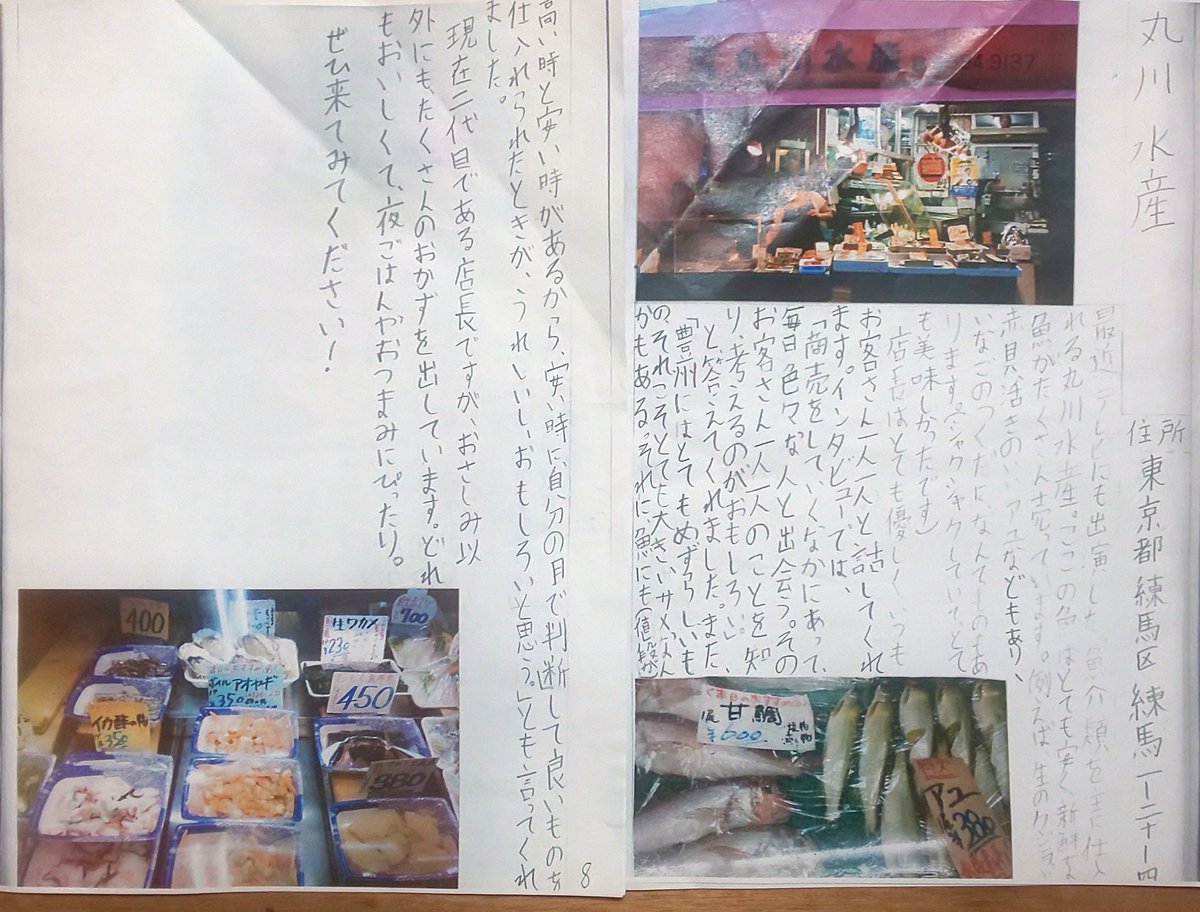 丸川 水産
住所 東京都 練馬区 練馬一ー二十ー四
水産 64-9137
最近テレビにも出演した、魚介類を主に仕入
れる丸川水産。ここの魚はとても安く、新鮮な
魚がたくさん売っています。(例えば、生のクジラ
赤貝、活きのいいアユなどもあり、
いなごのつくだに、なんてものもあ
ります。シャクシャクしていて、とて
も美味しかったです)
店長はとても優しく、いつも
お客さん一人一人と話してくれ
ます。インタビューでは、
「商売をしていくなかにあって、
毎日色々な人と出会う。その
お客さん一人一人のことを知
り、考えるのがおもしろい。」
と答えてくれました。また、
「豊州にはとてもめずらしいも
の、それこそとても大きいサメなん
かもある。それに魚にも(値段が)
高い時と安い時があるから、安い時に自分の目で判断して良いものを
仕入れられたときが、うれしいし、おもしろいと思う。」とも言ってくれ
ました。
現在二代目である店長ですが、おさしみ以
外にもたくさんのおかずを出しています。どれ
もおいしくて、夜ごはんやおつまみにぴったり。
ぜひ来てみてください!
甘鯛
¥600
アユ
380
400
生ワカメ
¥230
700
ボイルアオヤギ
¥350
450
イカ
350
880
8